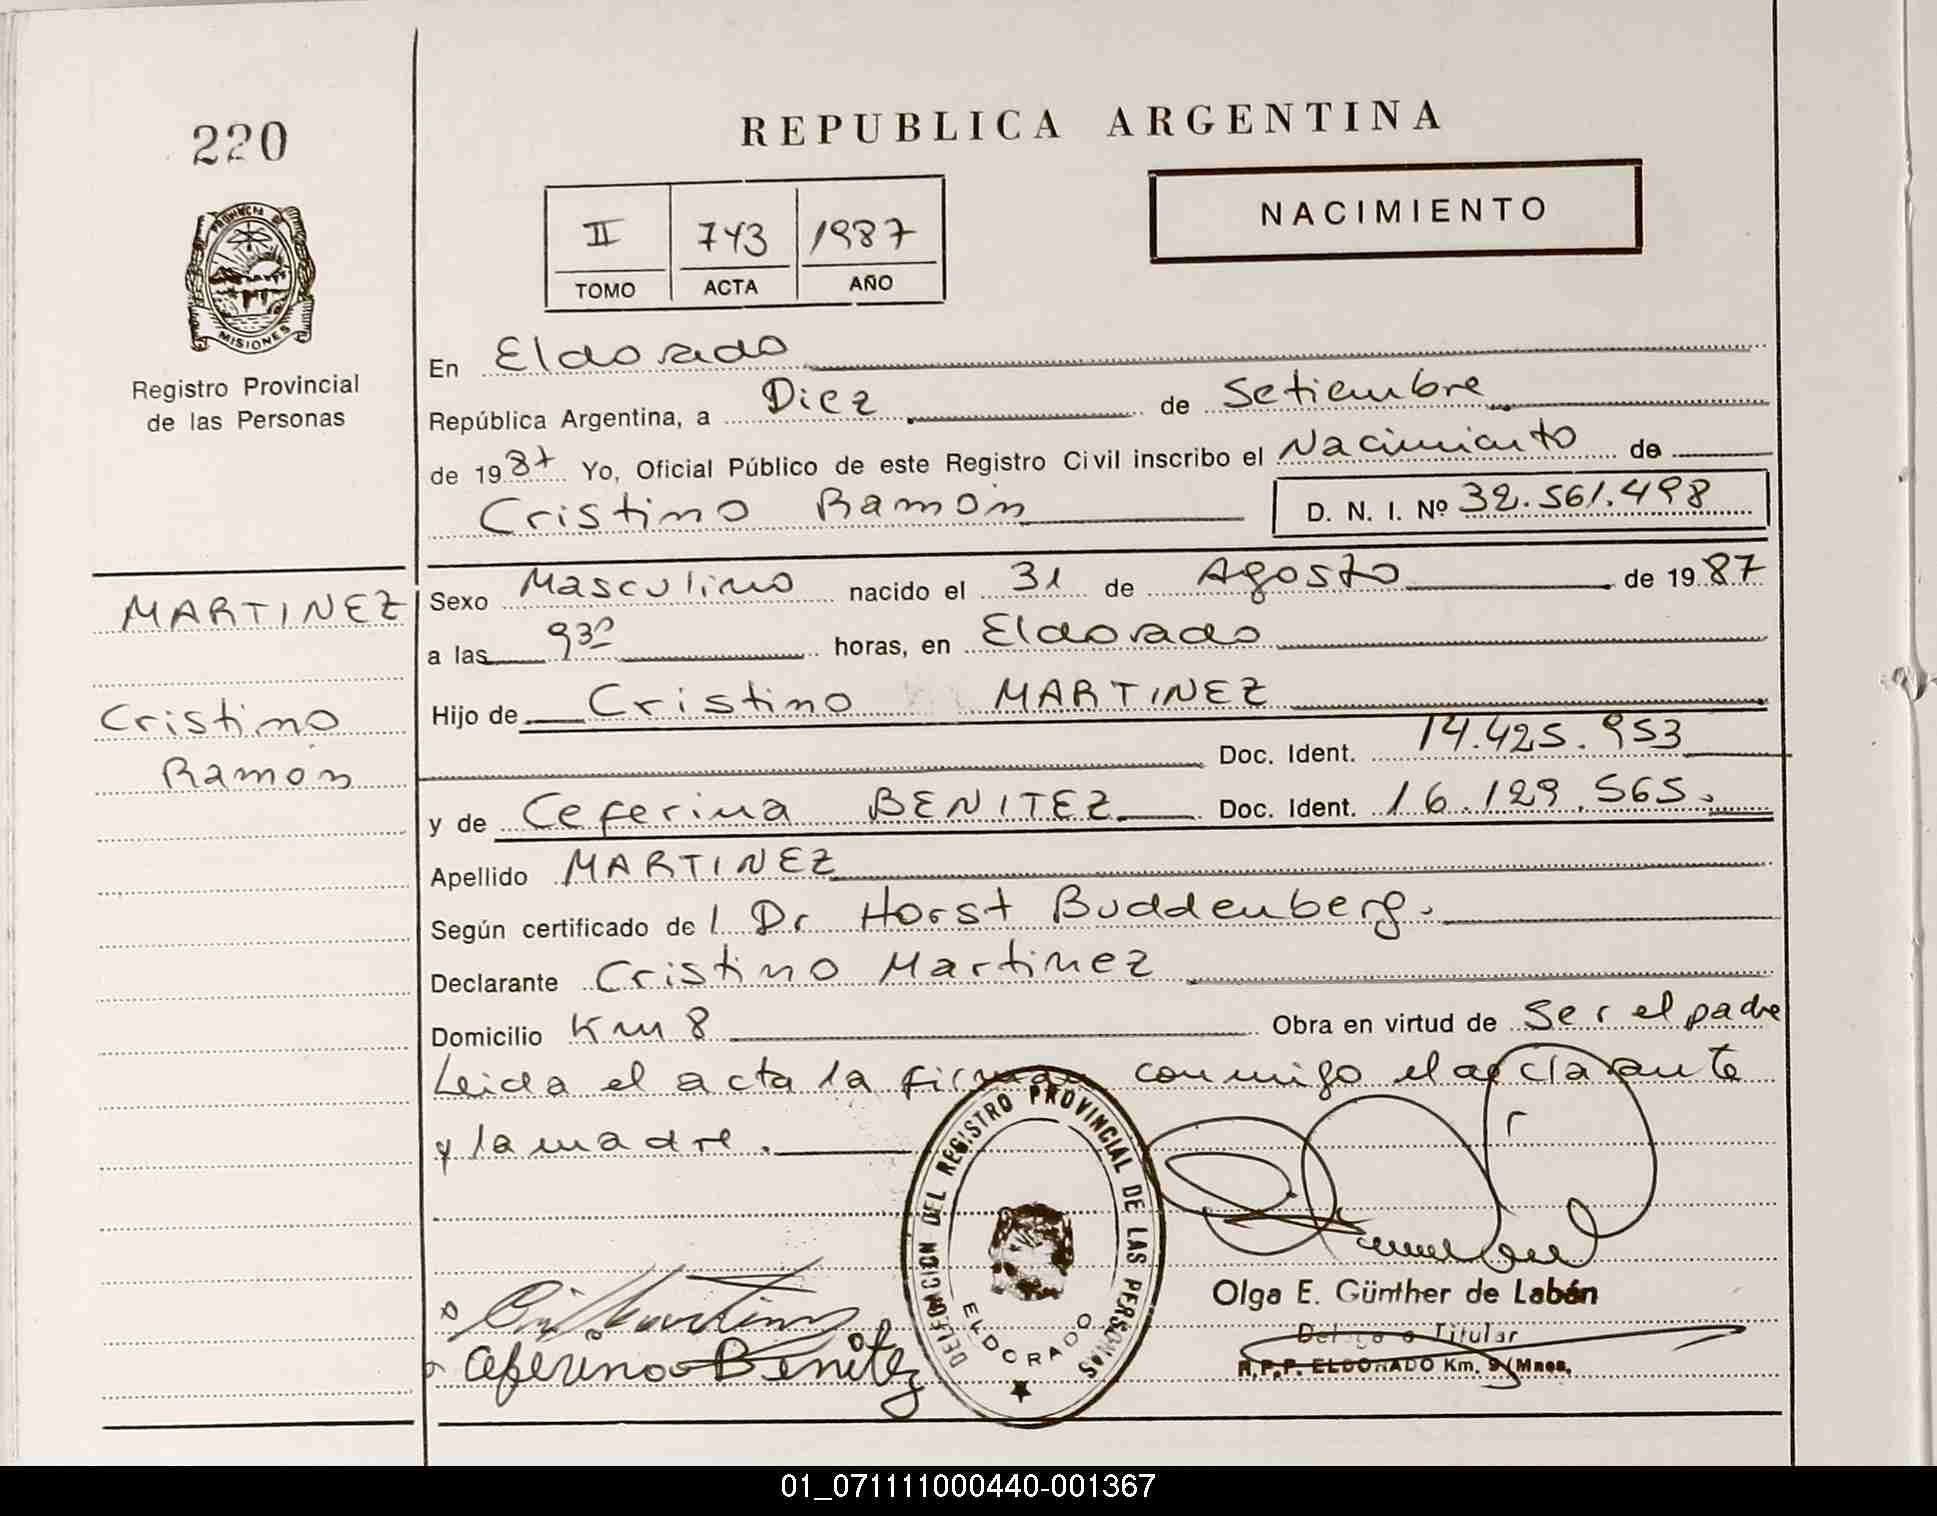 220
PROVINCIA DE
MISIONES
Registro Provincial
de las Personas
MARTINEZ
Cristino
Ramón
REPUBLICA ARGENTINA
II 743 1987
TOMO ACTA AÑO
NACIMIENTO
En Eldorado
República Argentina, a Diez de Setiembre
de 1987 Yo, Oficial Público de este Registro Civil inscribo el Nacimiento de
Cristino Ramón D. N. I. Nº 32.561.498
Sexo Masculino nacido el 31 de Agosto de 1987
a las 9³⁰ horas, en Eldorado
Hijo de Cristino MARTINEZ
Doc. Ident. 14.425.953
y de Ceferina BENITEZ Doc. Ident. 16.129.565.
Apellido MARTINEZ
Según certificado de l Dr Horst Buddenberg.
Declarante Cristino Martinez
Domicilio Km 8 Obra en virtud de Ser el padre
Leida el acta la firman conmigo el declarante
y la madre.
DELEGACION DEL REGISTRO PROVINCIAL DE LAS PERSONAS
ELDORADO
Olga E. Günther de Labán
Delegada Titular
R.P.P. ELDORADO Km. 9 (Mnes,
Ceferina Benitez
01_071111000440-001367